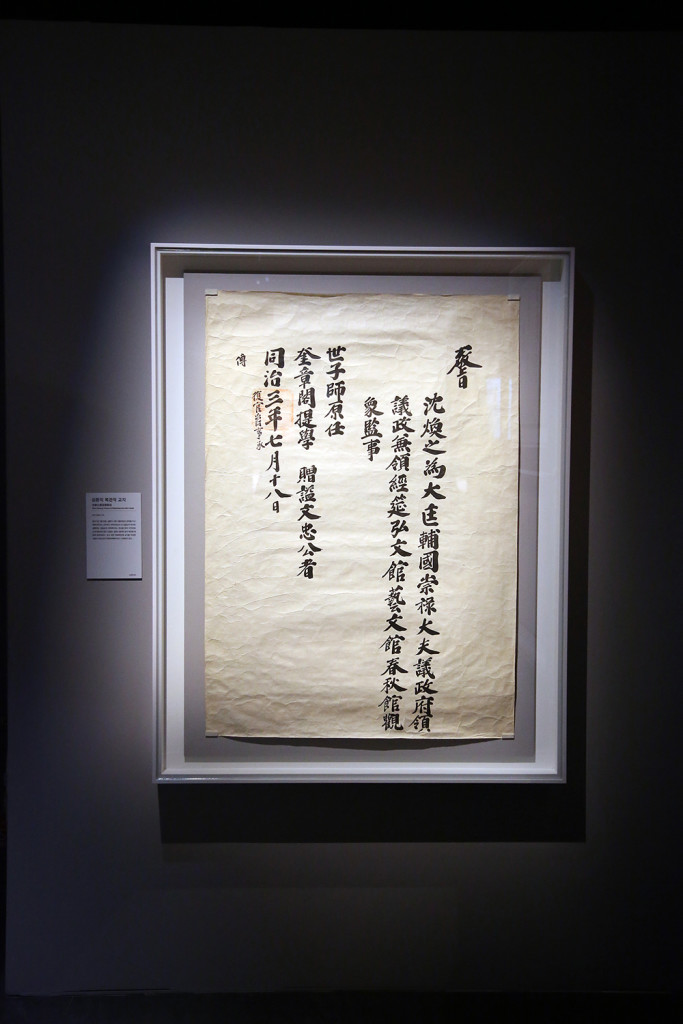 敎旨
沈煥之為大匡輔國崇禄大夫議政府領
議政兼領經筵弘文館藝文館春秋館觀
象監事
世子師原任
奎章閣提學 贈諡文忠公者
同治三年七月十八日
復官爵事承
傳
심환지 복관작 교지